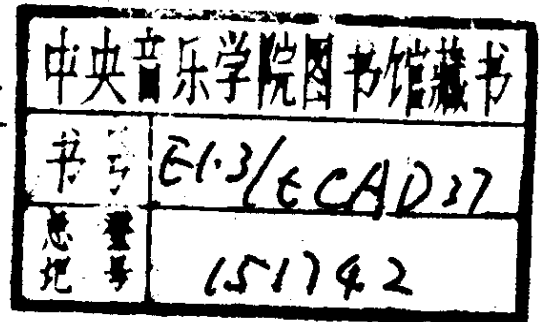 中央音乐学院图书馆藏书
书号 E1.3/tCAD37
总登
记号 151742